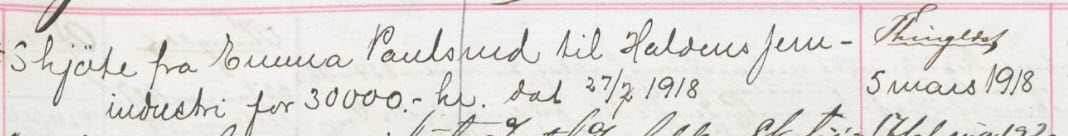 Skjöte fra Emma Paulsrud til Haldens Jern-
industri for 30000.- kr. dat 27/2 1918
Thinglæst
5 mars 1918